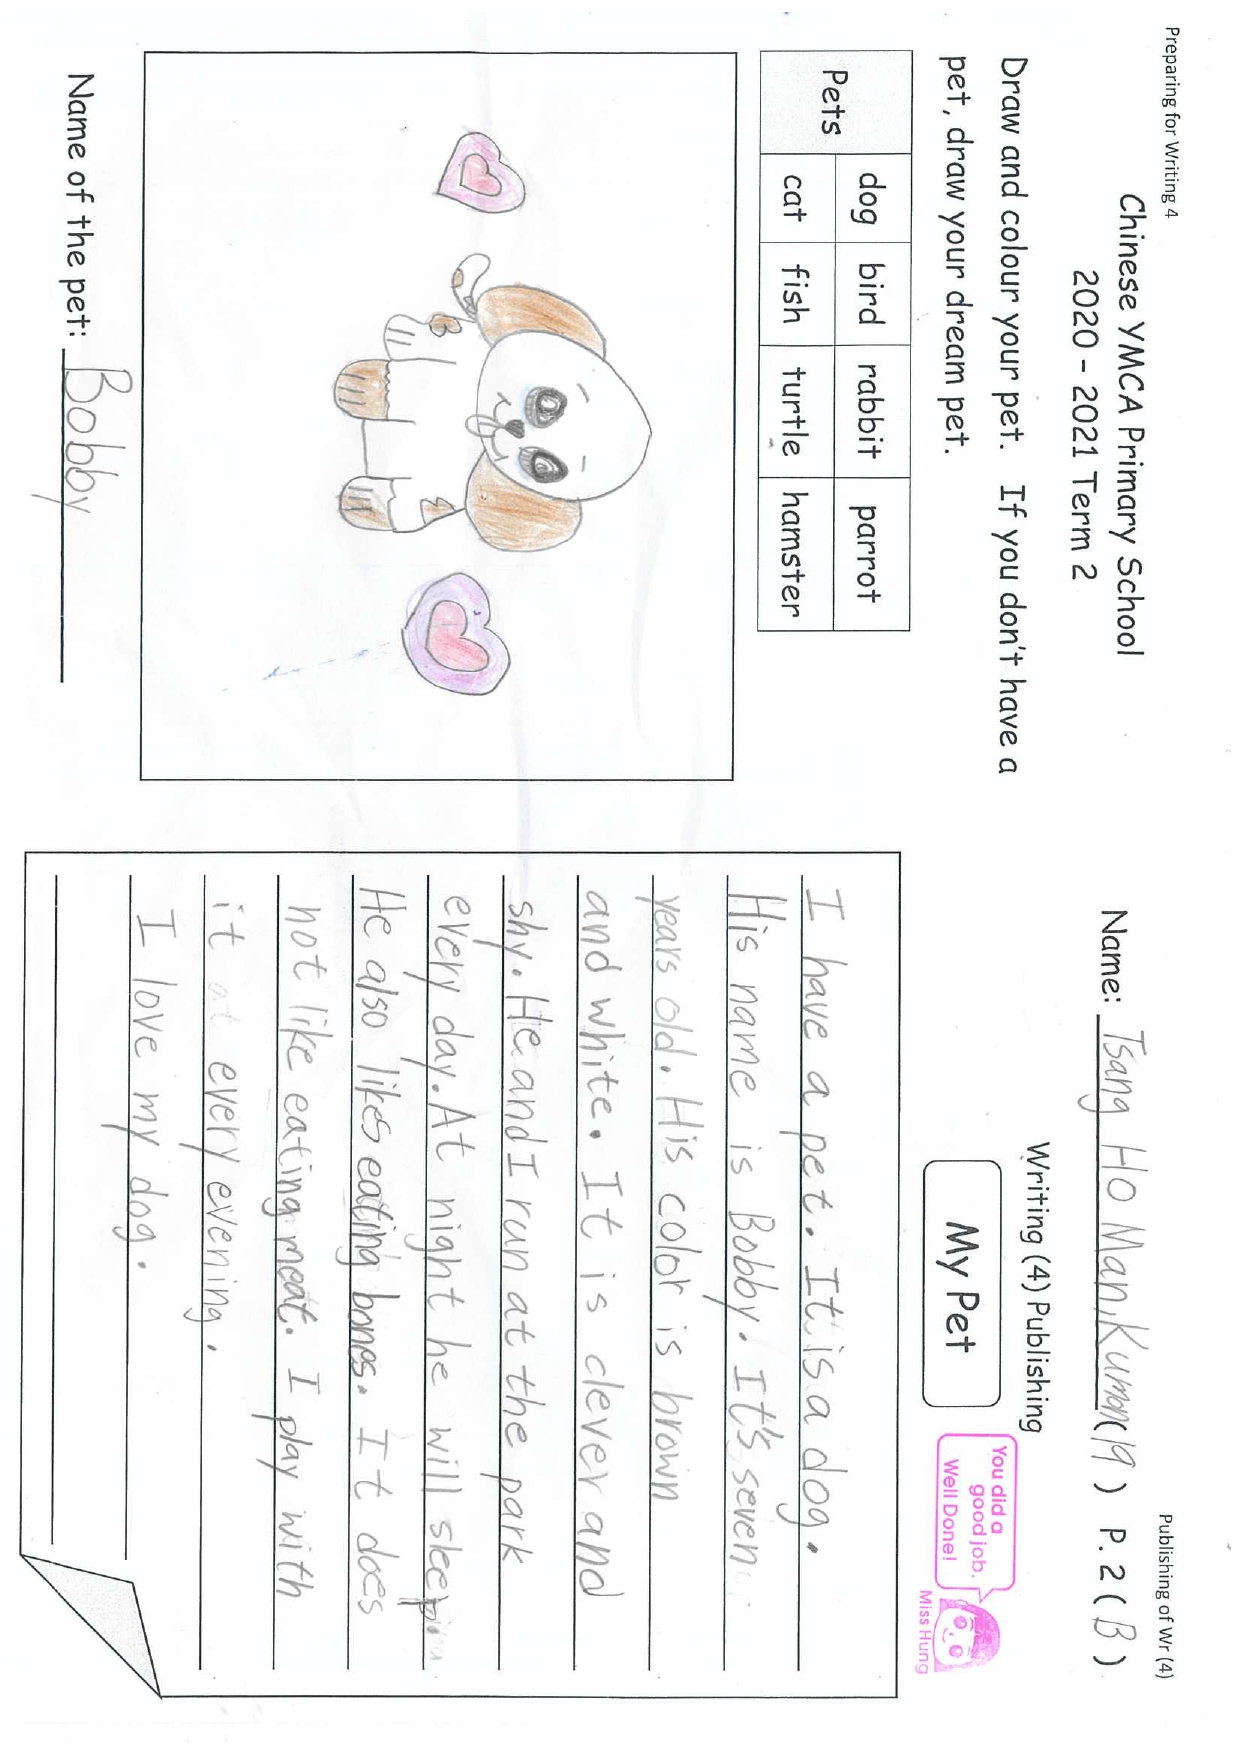 Preparing for Writing 4
Chinese YMCA Primary School
2020 - 2021 Term 2
Draw and colour your pet. If you don't have a
pet, draw your dream pet.
Pets
dog bird rabbit parrot
cat fish turtle hamster
Name of the pet: Bobby
Publishing of Wr (4)
Name: Tsang Ho Man, Kumon (19) P. 2 ( B )
Writing (4) Publishing
My Pet
You did a
good job.
Well Done!
Miss Hung
I have a pet. It is a dog.
His name is Bobby. It's seven
years old. His color is brown
and white. It is clever and
shy. He and I run at the park
every day. At night he will sleep.
He also likes eating bones. It does
not like eating meat. I play with
it every evening.
I love my dog.